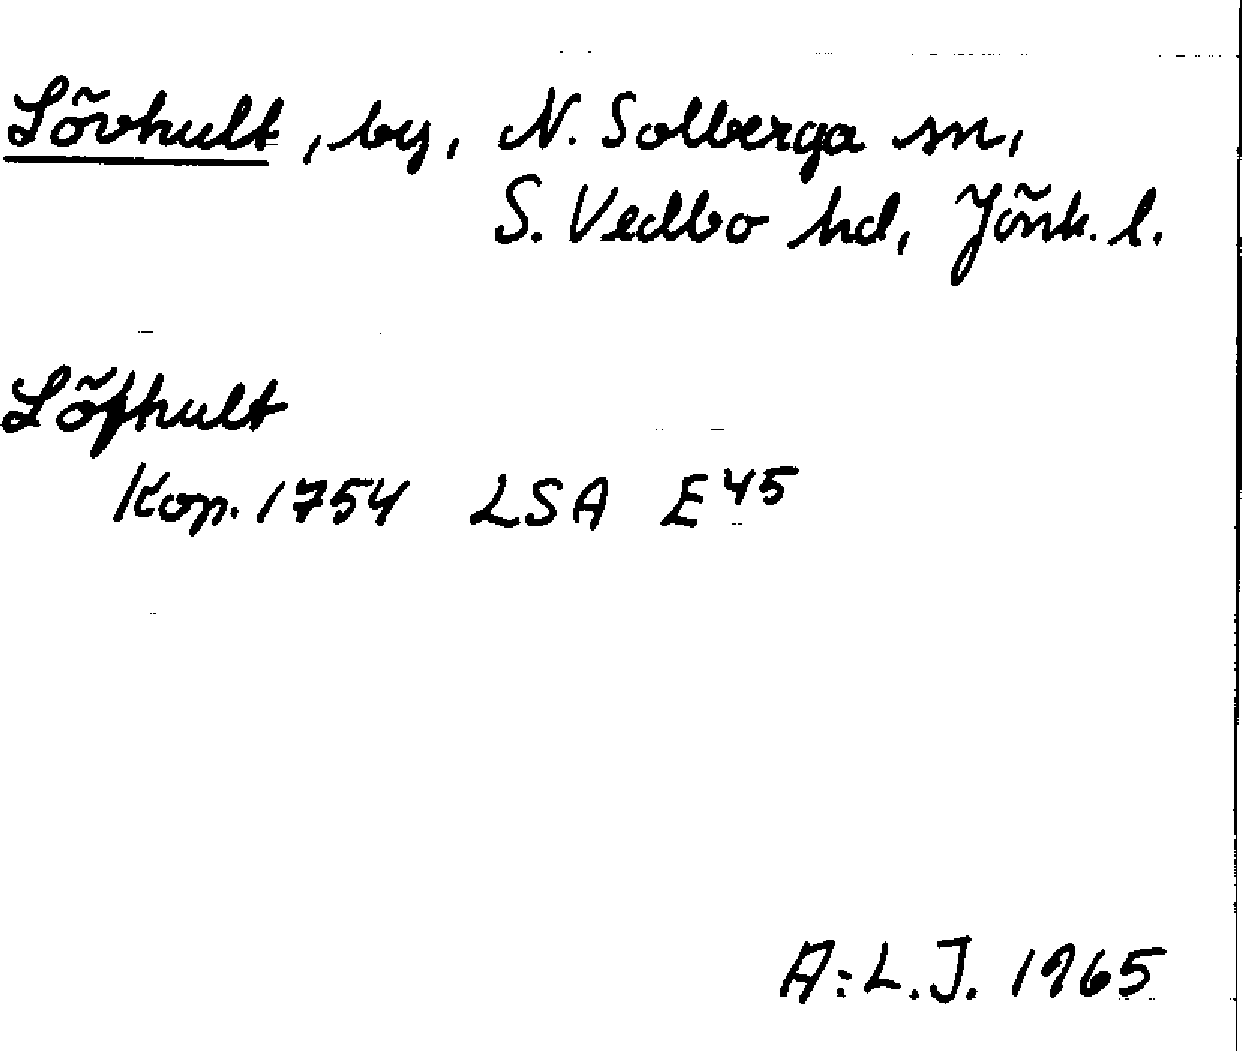 Lövhult, by, N. Solberga sn,
S. Vedbo hd, Jönk. l.
Löfhult
Kop. 1754 LSA E 45
A:L.J. 1965